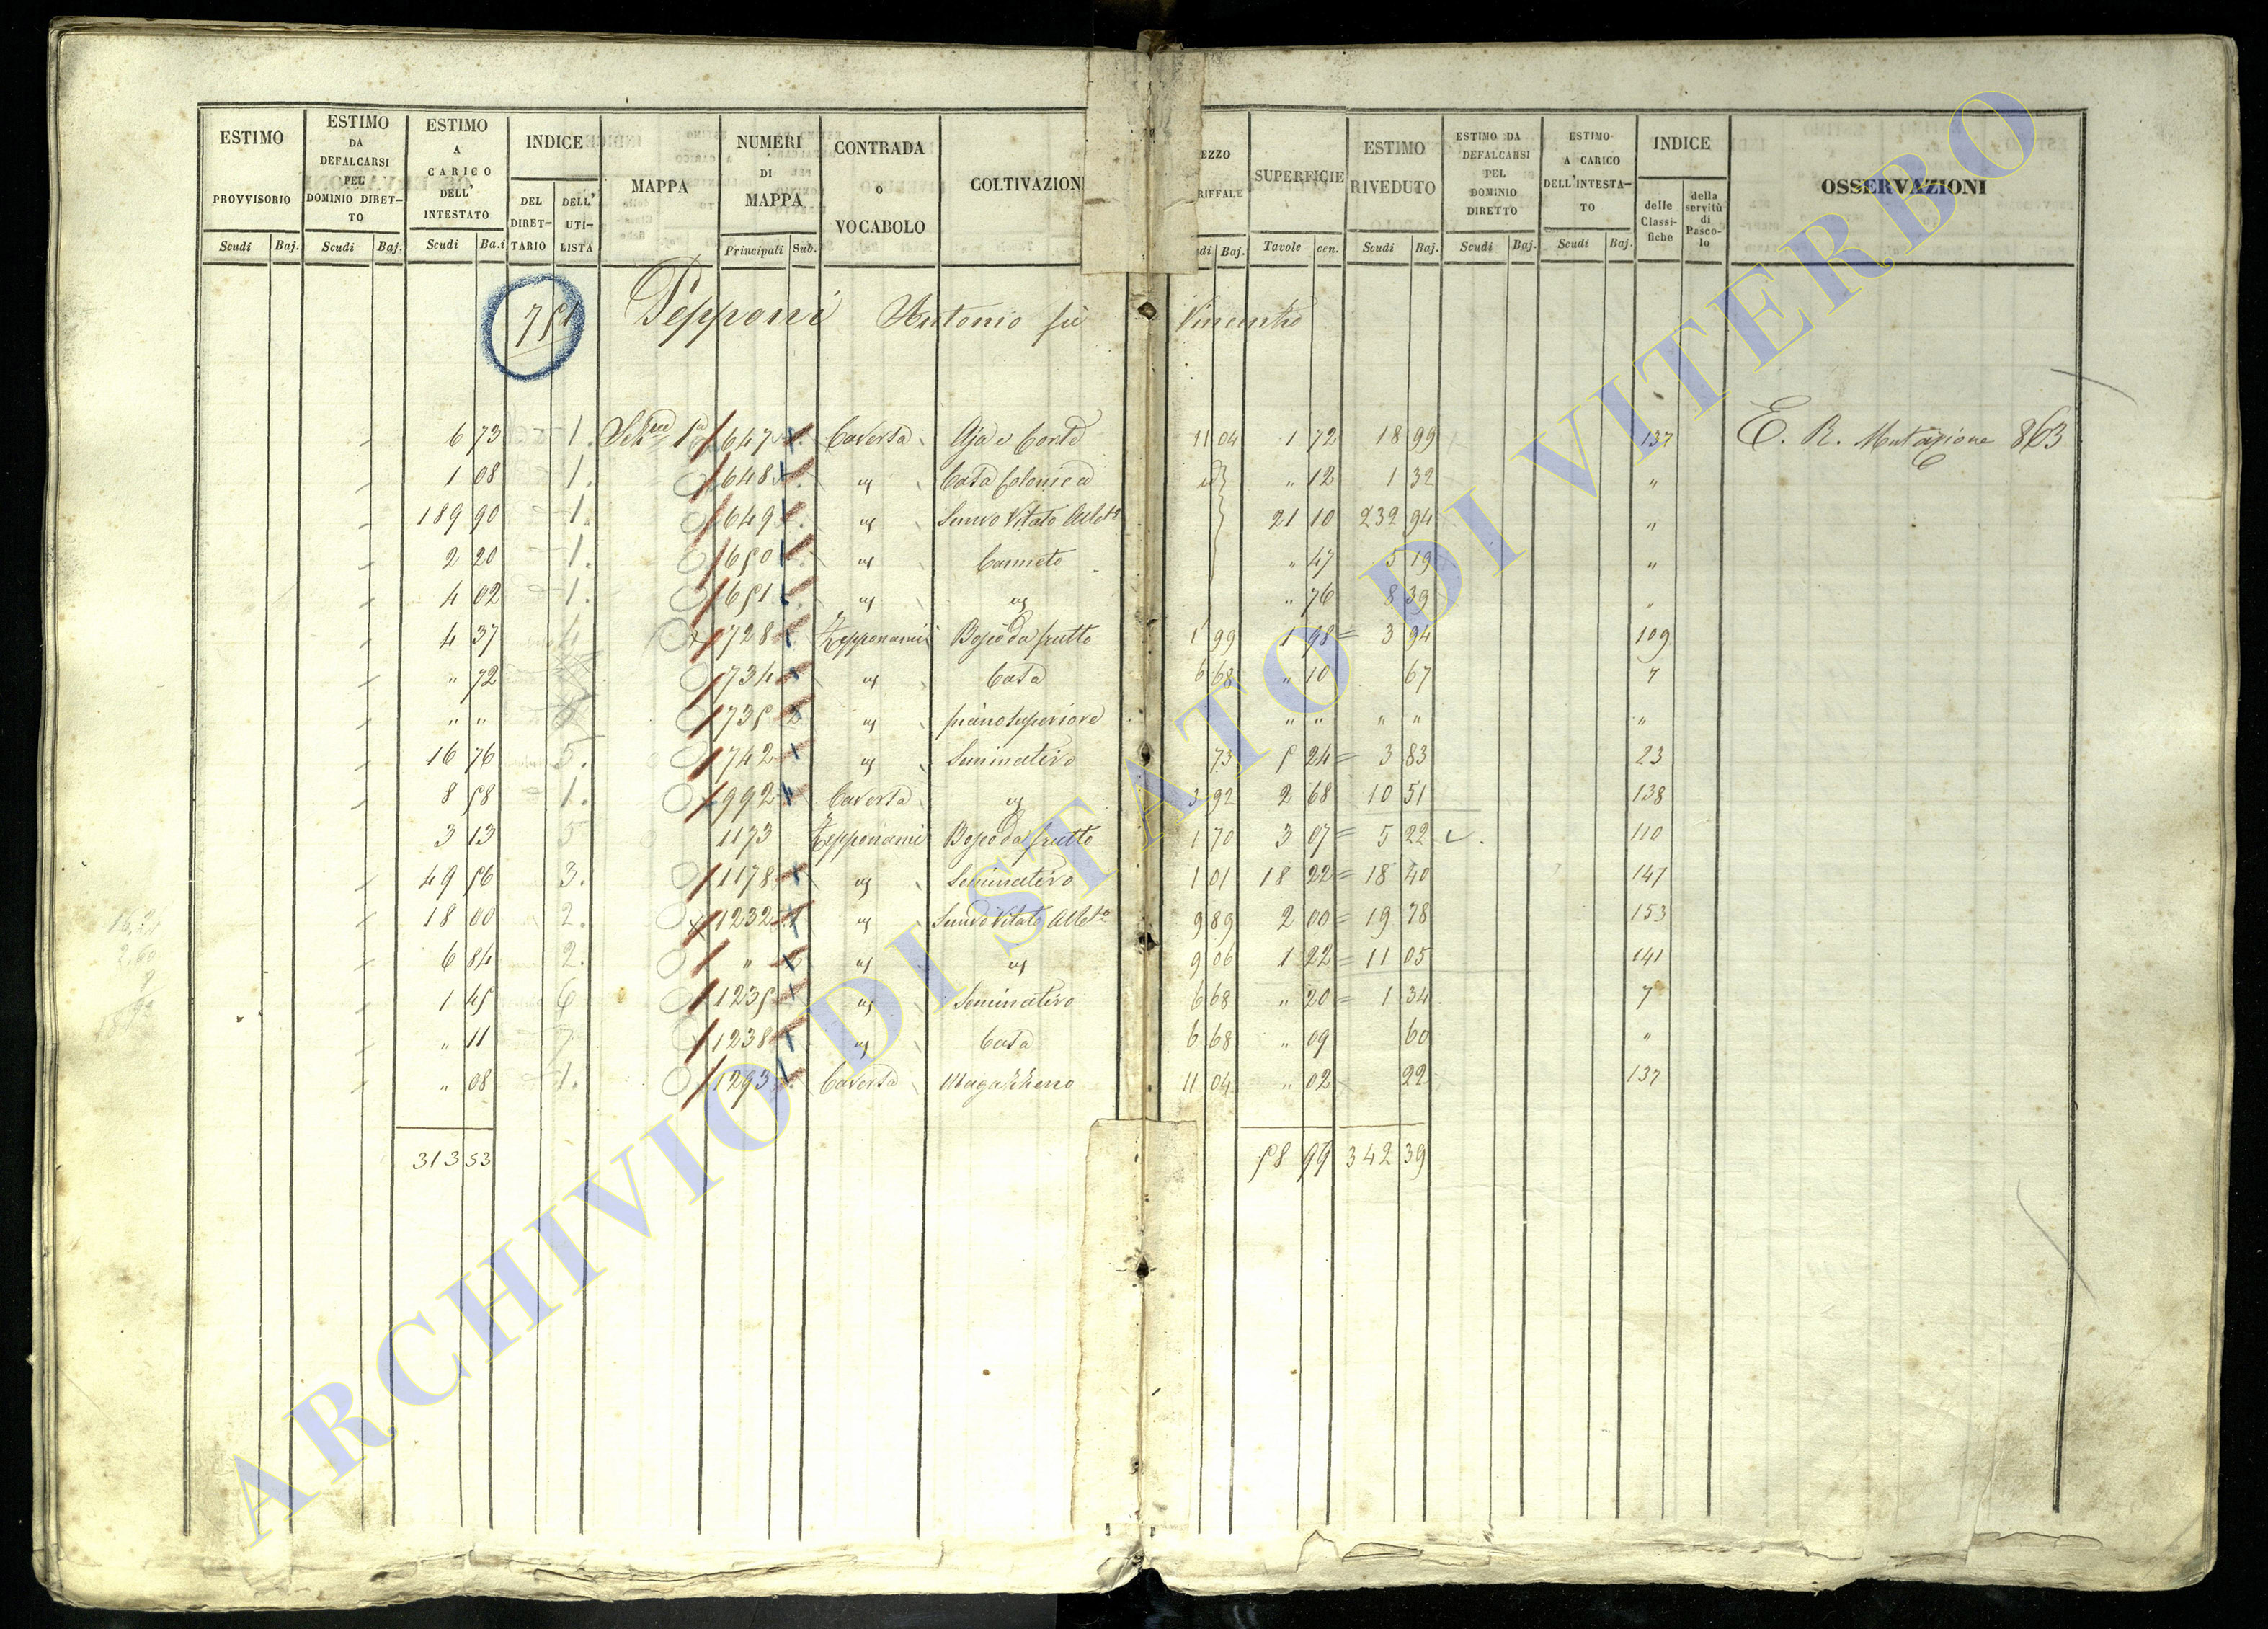 ESTIMO PROVVISORIO Scudi Baj.
ESTIMO DA DEFALCARSI PEL DOMINIO DIRET-TO Scudi Baj.
ESTIMO A CARICO DELL' INTESTATO Scudi Ba.i
INDICE DEL DIRET-TARIO DELL' UTI-LISTA
MAPPA
NUMERI DI MAPPA Principali Sub.
CONTRADA O VOCABOLO
COLTIVAZION
EZZO RIFFALE di Baj.
SUPERFICIE Tavole cen.
ESTIMO RIVEDUTO Scudi Baj.
ESTIMO DA DEFALCARSI PEL DOMINIO DIRETTO Scudi Baj.
ESTIMO A CARICO DELL'INTESTA-TO Scudi Baj.
INDICE delle Classi-fiche della servitù di Pasco-lo
OSSERVAZIONI
751 Pepponi Antonio fù Vincenzo
6 73 1. Sez.ne 1a 647 Caversa Aja e Corte 11 04 1 72 18 99 137 E. R. Mutazione 863
1 08 1. 648 " Casa Colonica " 12 1 32 "
189 90 1. 649 " Semvo Vitato Albto 21 10 232 94 "
2 20 1. 650 " Canneto " 47 5 19 "
4 02 1. 651 " " " 76 8 39 "
4 37 4 728 Zepponami Bosco da frutto 1 99 1 98 = 3 94 109
" 72 734 " Casa 6 68 " 10 67 7
" " 735 2 " piano superiore " " " " "
16 76 5. 742 " Seminativo 73 5 24 = 3 83 23
8 58 1. 992 Caversa " 3 92 2 68 10 51 138
3 13 5 1173 Zepponami Bosco da frutto 1 70 3 07 = 5 22 110
49 56 3. 1178 " Seminativo 1 01 18 22 = 18 40 147
18 00 2. 1232 1 " Semvo Vitato Albto 9 89 2 00 = 19 78 153
6 84 2. " " " 9 06 1 22 = 11 05 141
1 45 6 1235 " Seminativo 6 68 " 20 = 1 34 7
" 11 7 1238 " Casa 6 68 " 09 60 "
" 08 1. 1293 Caversa Magazzeno 11 04 " 02 22 137
313 53 58 99 342 39
ARCHIVIO DI STATO DI VITERBO